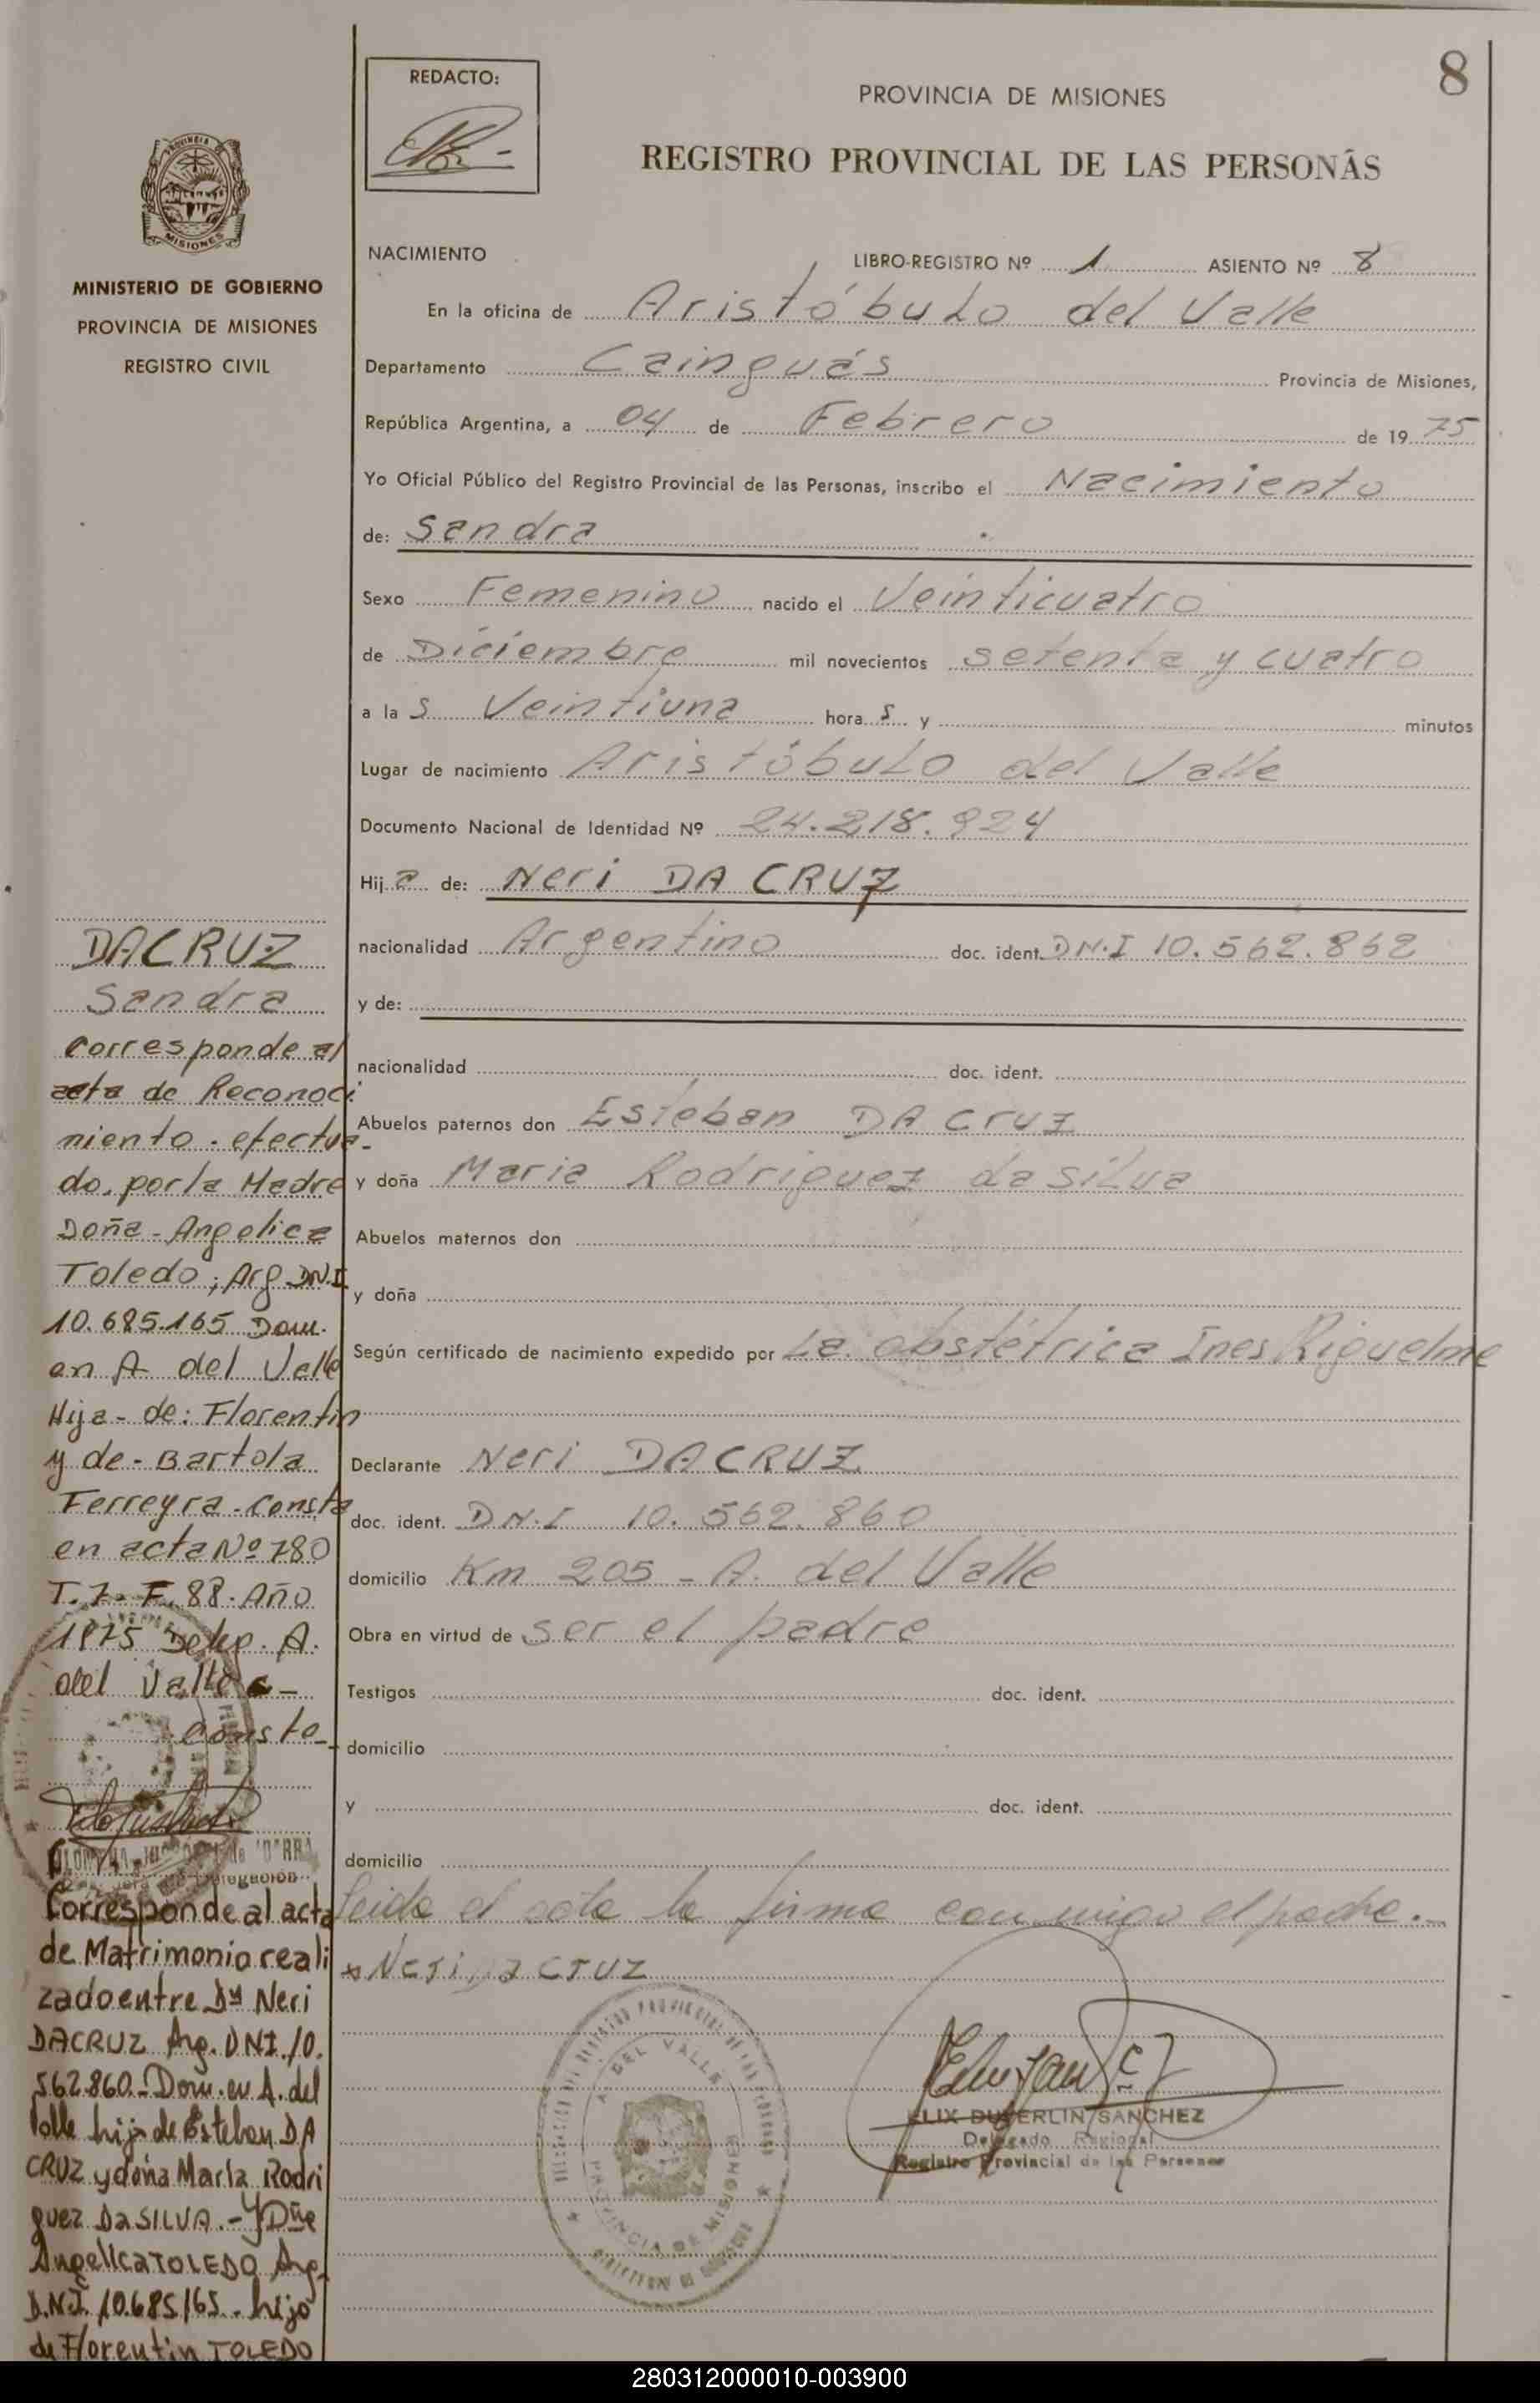 8
REDACTO:
PROVINCIA DE MISIONES
REGISTRO PROVINCIAL DE LAS PERSONAS
MISIONES
MINISTERIO DE GOBIERNO
PROVINCIA DE MISIONES
REGISTRO CIVIL
NACIMIENTO
LIBRO-REGISTRO Nº 1 ASIENTO Nº 8
En la oficina de Aristóbulo del Valle
Departamento Cainguás Provincia de Misiones,
República Argentina, a 04 de Febrero de 1975
Yo Oficial Público del Registro Provincial de las Personas, inscribo el Nacimiento
de: Sandra
Sexo Femenino nacido el Veinticuatro
de Diciembre mil novecientos setenta y cuatro
a la s Veintiuna hora s y minutos
Lugar de nacimiento Aristóbulo del Valle
Documento Nacional de Identidad Nº 24.218.924
Hij a de: Neri DA CRUZ
nacionalidad Argentino doc. ident. DN.I 10.562.862
y de:
nacionalidad doc. ident.
Abuelos paternos don Esteban DA CruZ
y doña Maria Rodriguez da silva
Abuelos maternos don
y doña
Según certificado de nacimiento expedido por La obstétrica Ines Riquelme
Declarante Neri DACRUZ
doc. ident. DN.I 10.562.860
domicilio Km 205 - A. del Valle
Obra en virtud de ser el padre
Testigos doc. ident.
domicilio
y doc. ident.
domicilio
Leida el acta la firma conmigo el padre.-
Neri Da Cruz
DACRUZ
Sandra
Corresponde al
acta de Reconoci
miento. efectua-
do, por la Madre
Doña - Angelica
Toledo; Arg DN.I
10.685.165 Dom.
en A del Valle
Hija - de: Florentin
y de - Bartola
Ferreyra - Consta
en acta Nº 780
T. 7 - F. 88. Año
1975 Deleg. A.
del Valle -
Consto-
Corresponde al acta
de Matrimonio reali
zado entre Dn Neri
DACRUZ Arg. DNI 10.
562.860 - Dom. en A. del
Valle hijo de Esteban DA
CRUZ y doña Maria Rodri
guez DaSILVA.- Y Dña
Angelica TOLEDO Arg.
D.N.I. 10.685165 - hija
de Florentin TOLEDO
A. DEL VALLE
PROVINCIA DE MISIONES
FELIX DUBERLIN SANCHEZ
Delegado Regional
Registro Provincial de las Personas
280312000010-003900